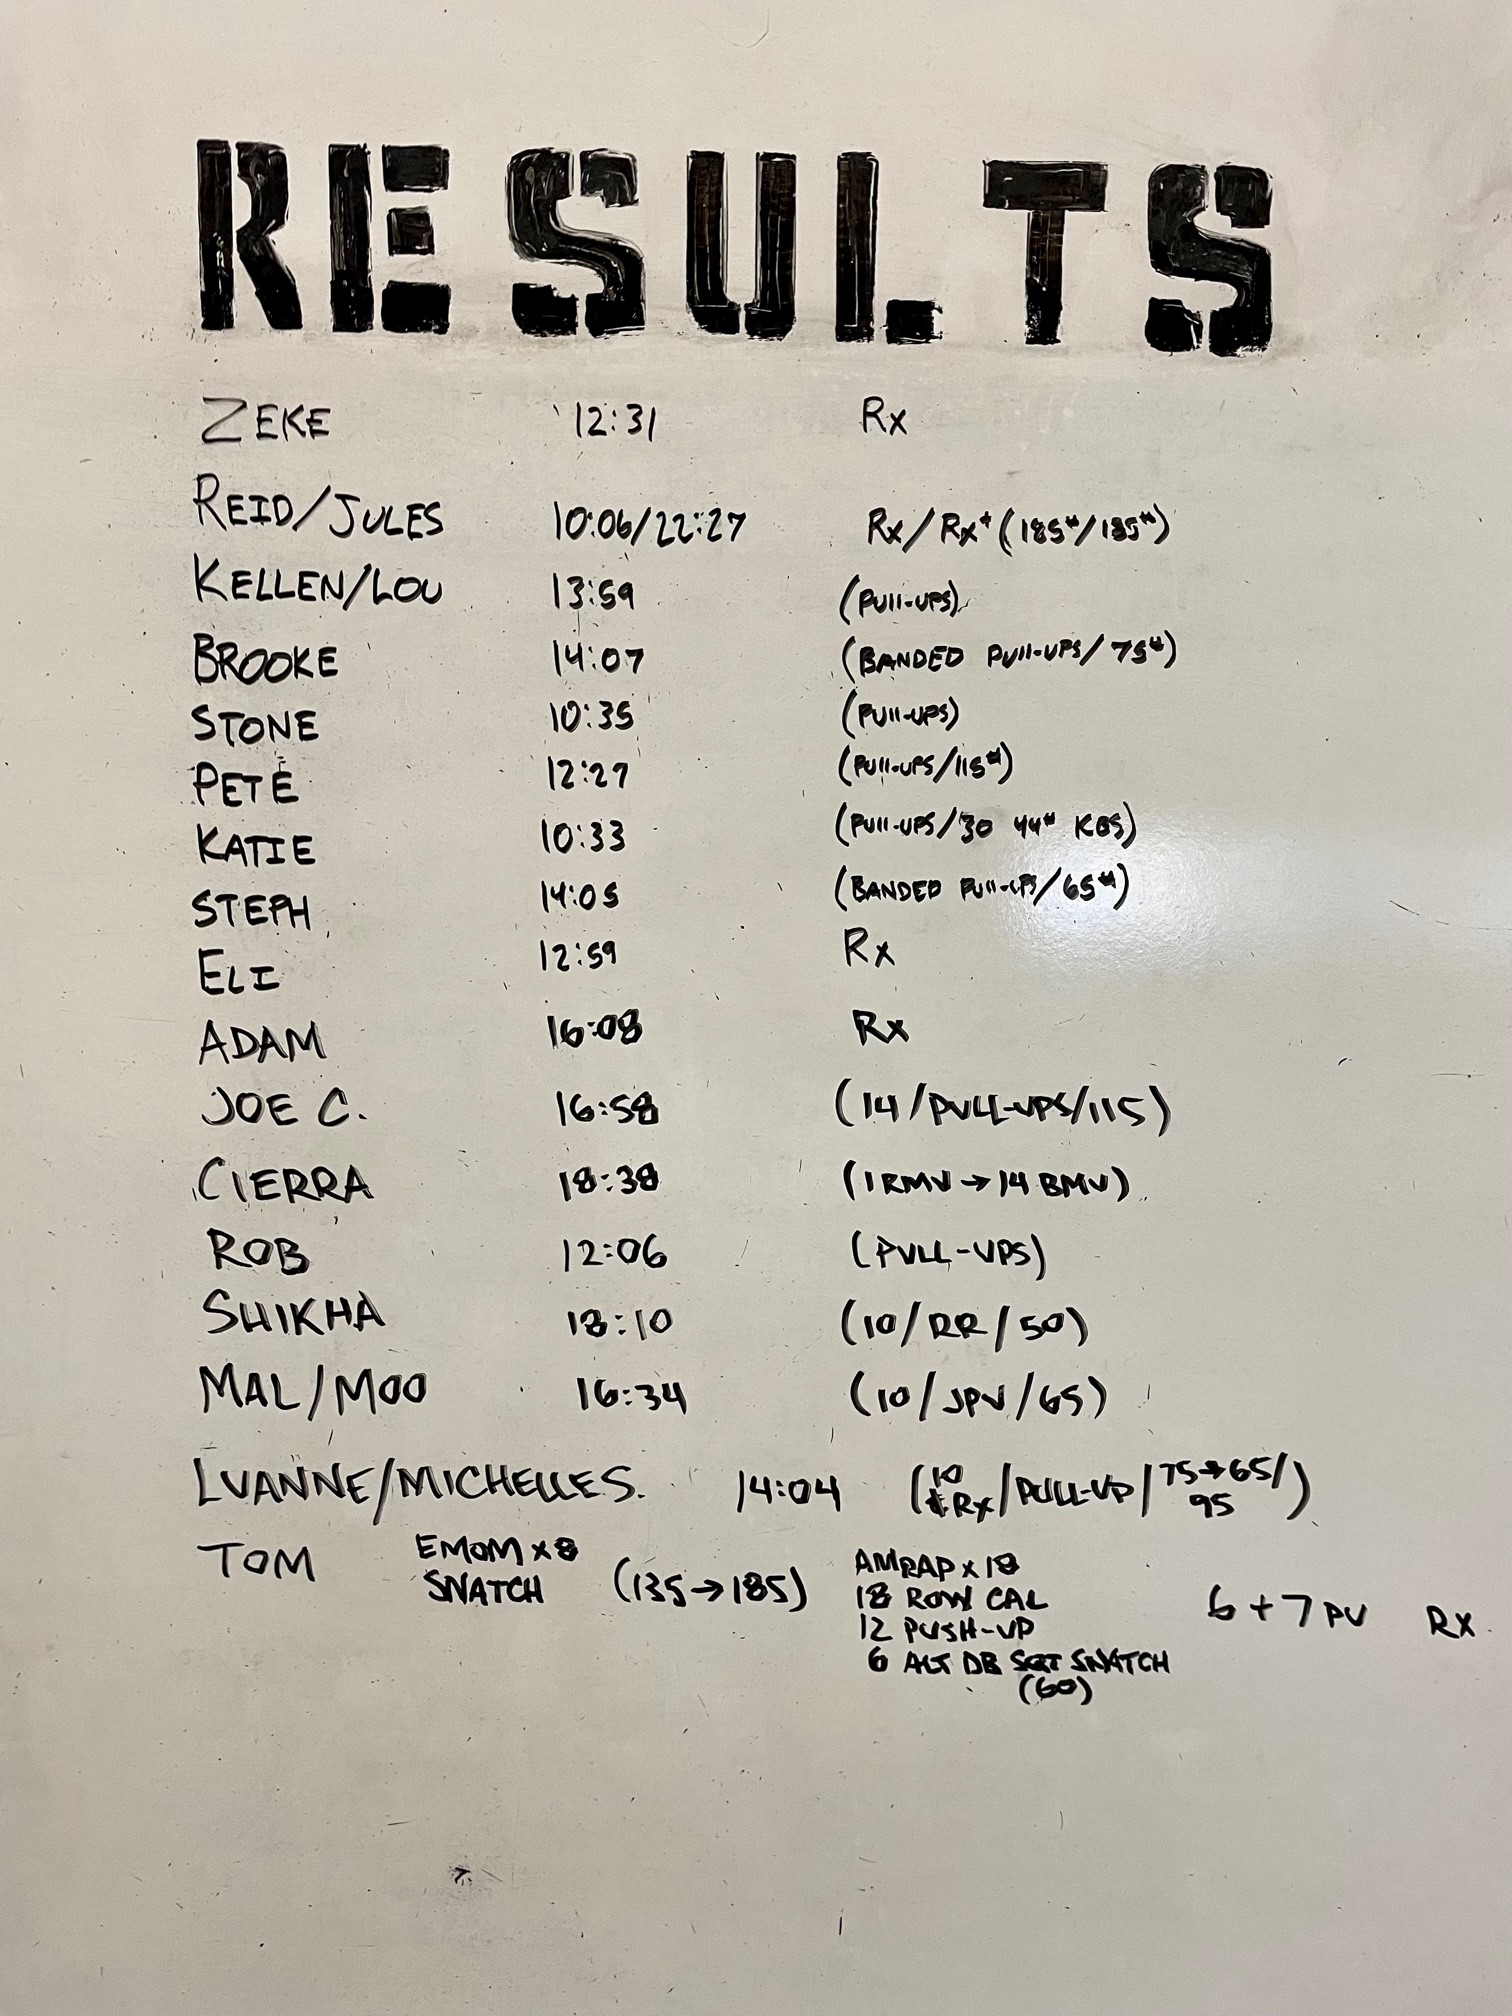 RESULTS
ZEKE 12:31 Rx
REID/JULES 10:06/22:27 Rx/Rx+(185#/185#)
KELLEN/LOU 13:59 (PULL-UPS)
BROOKE 14:07 (BANDED PULL-UPS/75#)
STONE 10:35 (PULL-UPS)
PETE 12:27 (PULL-UPS/115#)
KATIE 10:33 (PULL-UPS/30 44# KBS)
STEPH 14:05 (BANDED PULL-UPS/65#)
ELI 12:59 Rx
ADAM 16:08 Rx
JOE C. 16:58 (14/PULL-UPS/115)
CIERRA 18:38 (1RMU→14 BMU)
ROB 12:06 (PULL-UPS)
SHIKHA 18:10 (10/RR/50)
MAL/MOO 16:34 (10/JPU/65)
LUANNE/MICHELLE S. 14:04 (10 & Rx/PULL-UP/75→65/95)
TOM EMOM x 8 SNATCH (135→185)
AMRAP x 18
18 ROW CAL
12 PUSH-UP
6 ALT DB SQT SNATCH
(60)
6 + 7 PU Rx